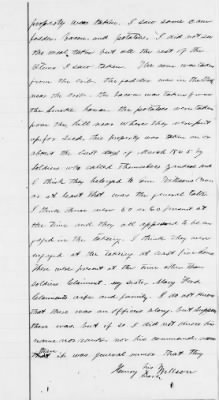 property was taken, I saw some corn
fodder, bacon and potatoes. I did not see
the meal taken but all the rest of the
items I saw taken. The corn was taken
from the crib. the fodder was in the
near the crib. the bacon was taken from
the smoke house. the potatoes were taken
from the hill near where they were put
up for seed. this property was taken on or
about the last days of March 1865 by
soldiers who called themselves yankees and
I think they belonged to Genl Wilsons Com
as at least that was the general talk.
I think there were 50 or 60 present at
the time and they all appeared to be en
gaged in the taking. I think they were
engaged at the taking at
there were present at the time other than
soldiers Claimant, my sister Mary Ford
Claimants wife and family. I do not know
that there was an officer along but suppose
there was but if so I did not know his
name nor rank nor his command
that it was general rumor that they
Henry his Wilson
mark